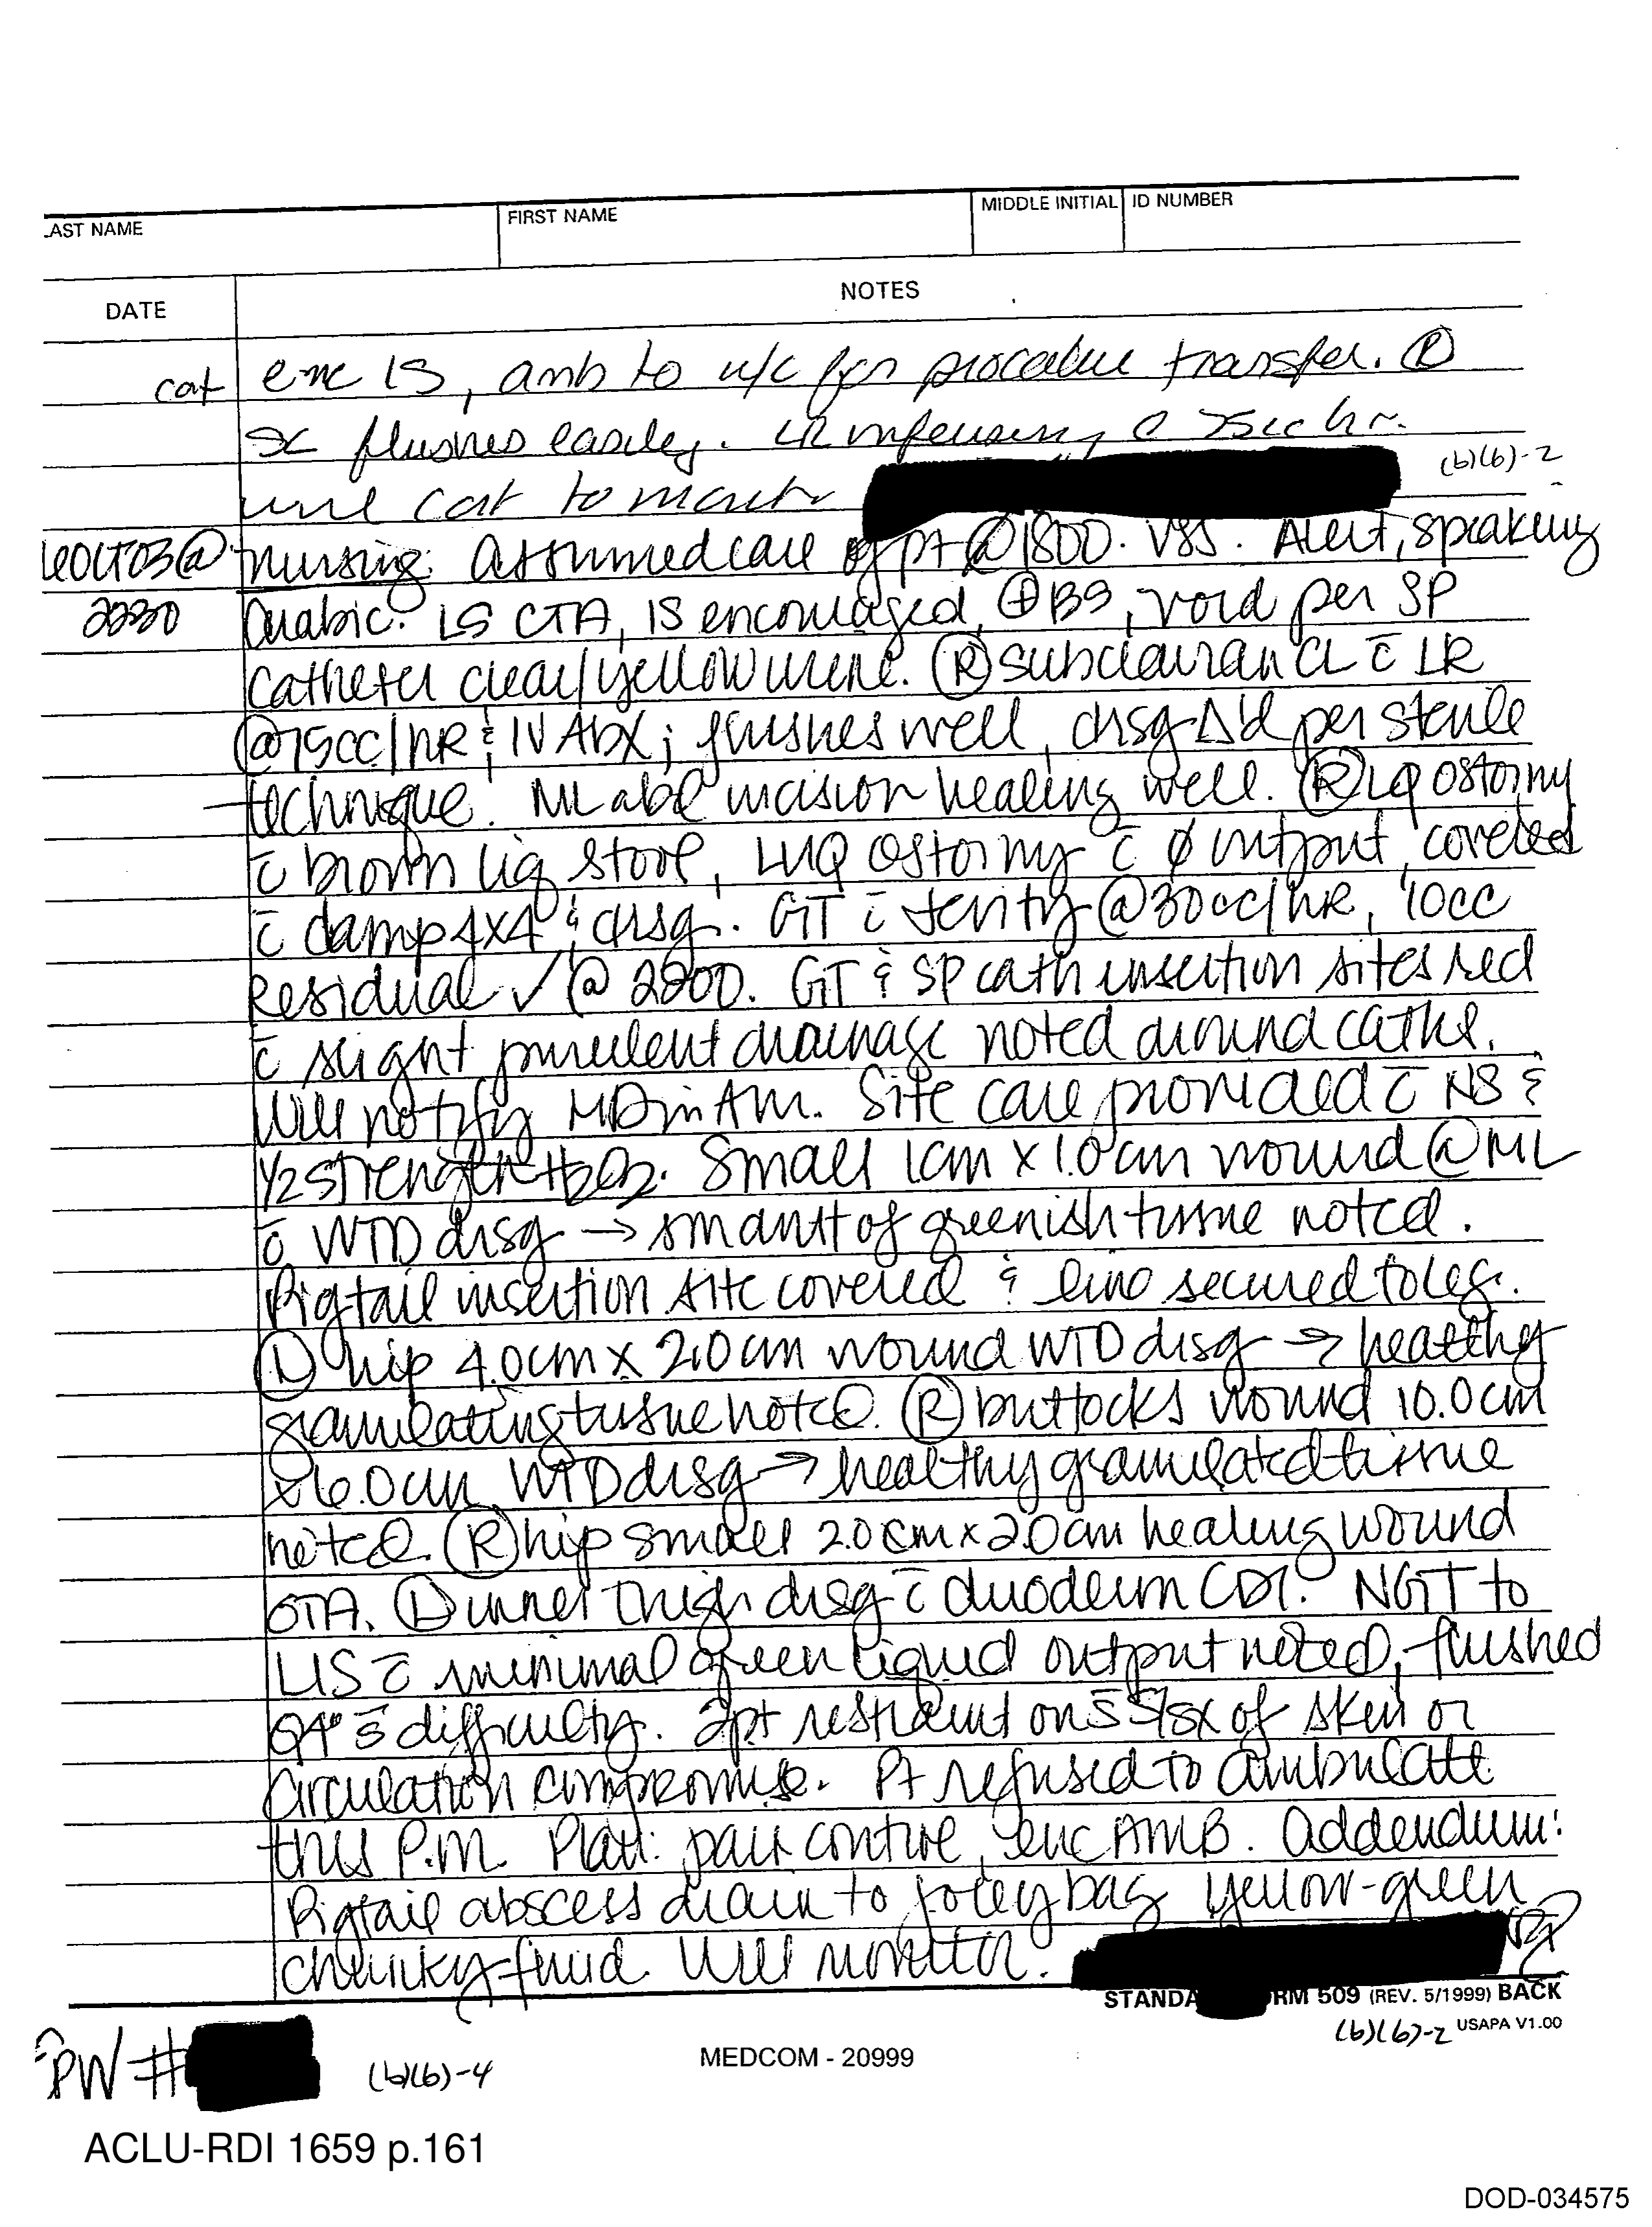 LAST NAME FIRST NAME MIDDLE INITIAL ID NUMBER
DATE NOTES
cont enc IS, amb to w/c for procedure transfer. Ⓡ
SC flushes easily. LR infusing @ 75cc hr.
will cont to monitor (b)(6)-2
OCT03@ Nursing: Assumed care of pt @ 1800. VSS. Alert, speaking
2230 Arabic. LS CTA, IS encouraged, ⊕BS, void per SP
catheter clear/yellow urine. Ⓡ subclavian CL c̄ LR
@75cc/HR & IV Abx; flushes well, drsg Δ'd per sterile
technique. ML abd incision healing well. ⓇLQ ostomy
c̄ brown liq stool, LUQ ostomy c̄ ∅ output, covered
c̄ damp 4x4 & drsg. GT c̄ Jevity @30cc/HR, 10cc
Residual ✓ @ 2200. GT & SP cath insertion sites red
c̄ slight purulent drainage noted around caths.
Will notify MD in AM. Site care provided c̄ NS &
1/2 strength H2O2. Small 1cm x 1.0cm wound @ ML
c̄ WTD drsg → sm amt of greenish tissue noted.
Pigtail insertion site covered & line secured to leg.
Ⓛ hip 4.0cm x 2.0cm wound WTD drsg → healthy
granulating tissue noted. Ⓡ buttocks wound 10.0cm
x 6.0cm, WTD drsg → healthy granulated tissue
noted. Ⓡ hip small 2.0cm x 2.0cm healing wound
OTA. Ⓛ inner thigh drsg c̄ duoderm CDI. NGT to
LIS c̄ minimal green liquid output noted, flushed
Q4° s̄ difficulty. 2pt restraint on s̄ s/sx of skin or
circulation compromise. Pt refused to ambulate
this P.M. Plan: pain control, enc AMB. Addendum:
Pigtail abscess drain to foley bag yellow-green
chunky fluid. Will monitor.
STANDA RM 509 (REV. 5/1999) BACK
(b)(6)-2 USAPA V1.00
EPW # (b)(6)-4 MEDCOM - 20999
ACLU-RDI 1659 p.161
DOD-034575